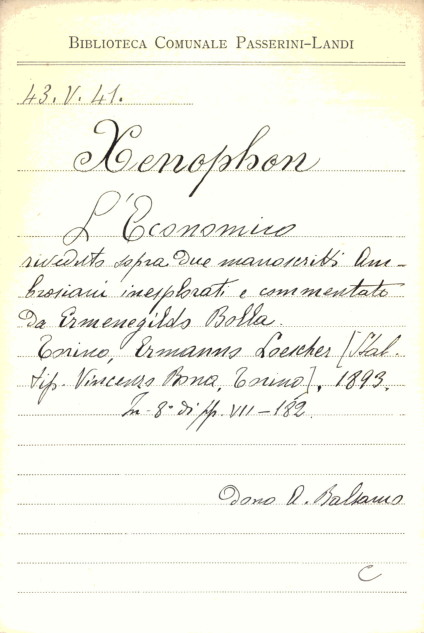 BIBLIOTECA COMUNALE PASSERINI-LANDI
43. V. 41.
Xenophon
L'Economico
riveduto sopra due manoscritti Am-
brosiani inesplorati e commentato
da Ermenegildo Bolla.
Torino, Ermanno Loescher [Stal.
tip. Vincenzo Bona, Torino], 1893.
In-8° di pp. VII-182.
Dono A. Balsamo
C